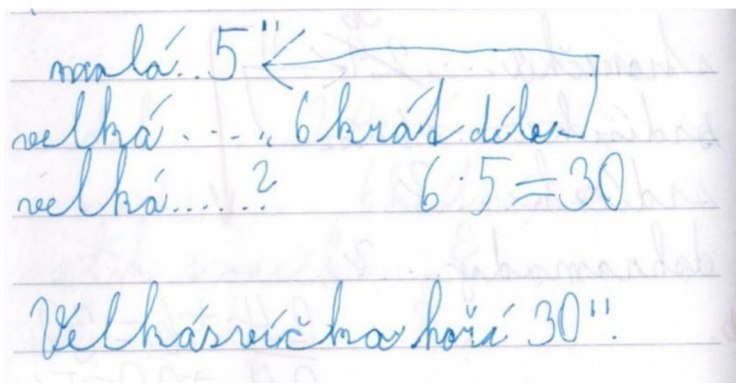 malá..5"
velká ...., 6 krát déle
velká.....? 6·5=30
Velkásvíčka hoří 30".